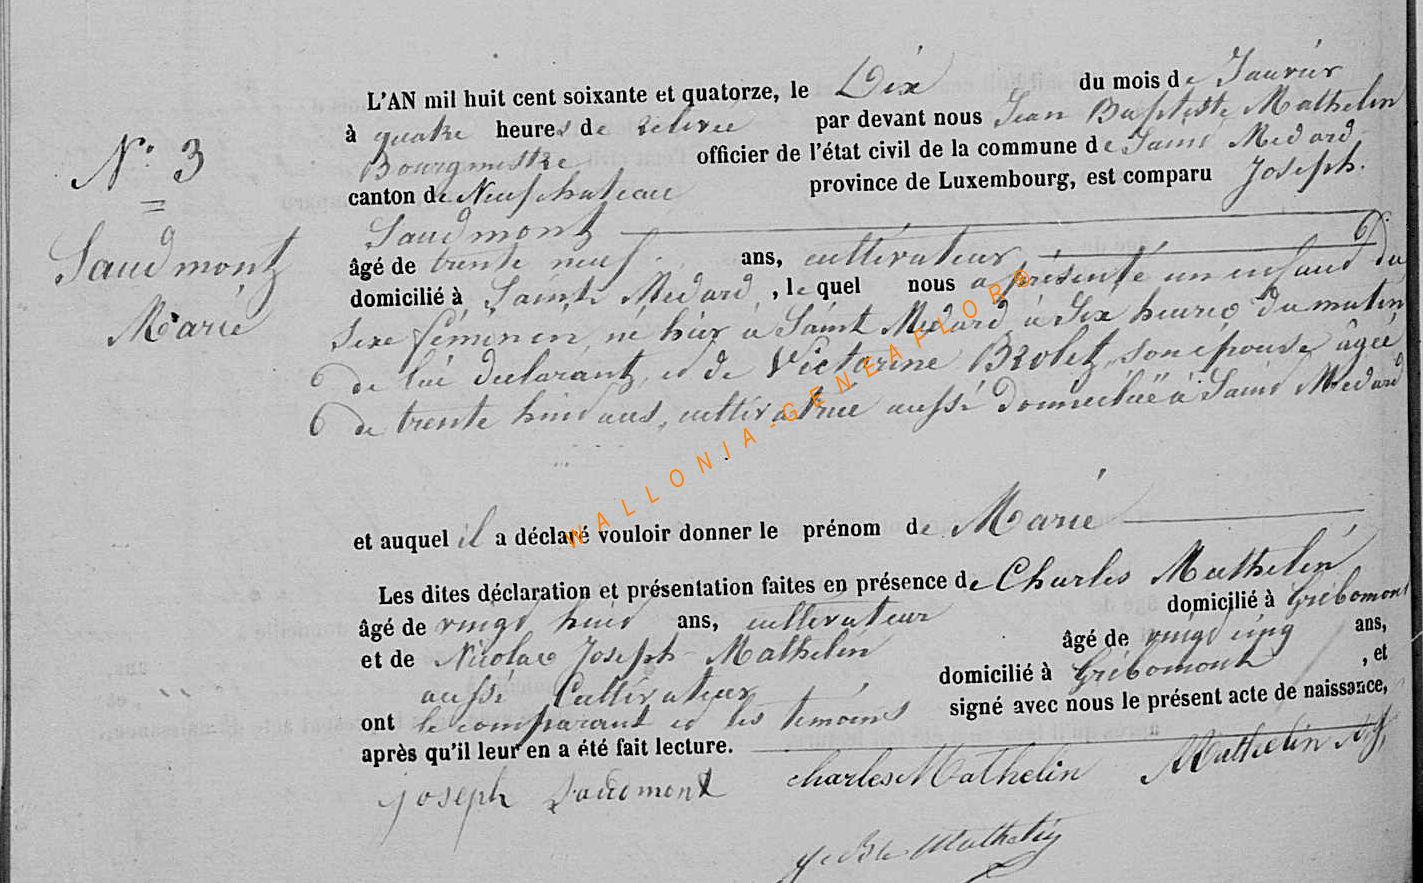 N° 3
Saudmont
Marie
L'AN mil huit cent soixante et quatorze, le Dix du mois de Janvier
à quatre heures de relevée par devant nous Jean Baptiste Mathelin
Bourgmestre officier de l'état civil de la commune de Saint Medard
canton de Neufchateau province de Luxembourg, est comparu Joseph
Saudmont
âgé de trente neuf ans, cultivateur,
domicilié à Saint Medard, lequel nous a présenté un enfant du
sexe féminin, né hier à Saint Medard à Six heures du matin,
de lui déclarant, et de Victorine Brolet, son épouse, âgée
de trente huit ans, cultivatrice aussi domiciliée à Saint Medard
et auquel il a déclaré vouloir donner le prénom de Marie
Les dites déclaration et présentation faites en présence de Charles Mathelin
âgé de vingt huit ans, cultivateur domicilié à Gribomont
et de Nicolas Joseph Mathelin âgé de vingt cinq ans,
aussi Cultivateur domicilié à Gribomont, et
ont le comparant et les témoins signé avec nous le présent acte de naissance,
après qu'il leur en a été fait lecture.
Joseph Saudmont charles Mathelin Mathelin N.J.
J Bte Mathelin
WALLONIA-GENEAFLORE